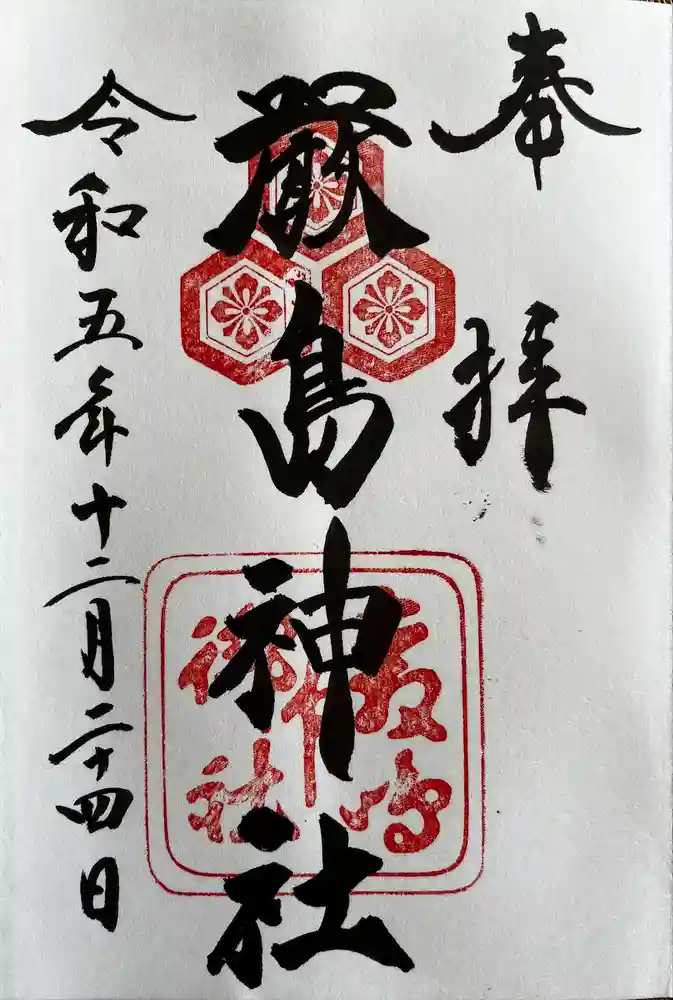 奉拝
厳島神社
令和五年十二月二十四日